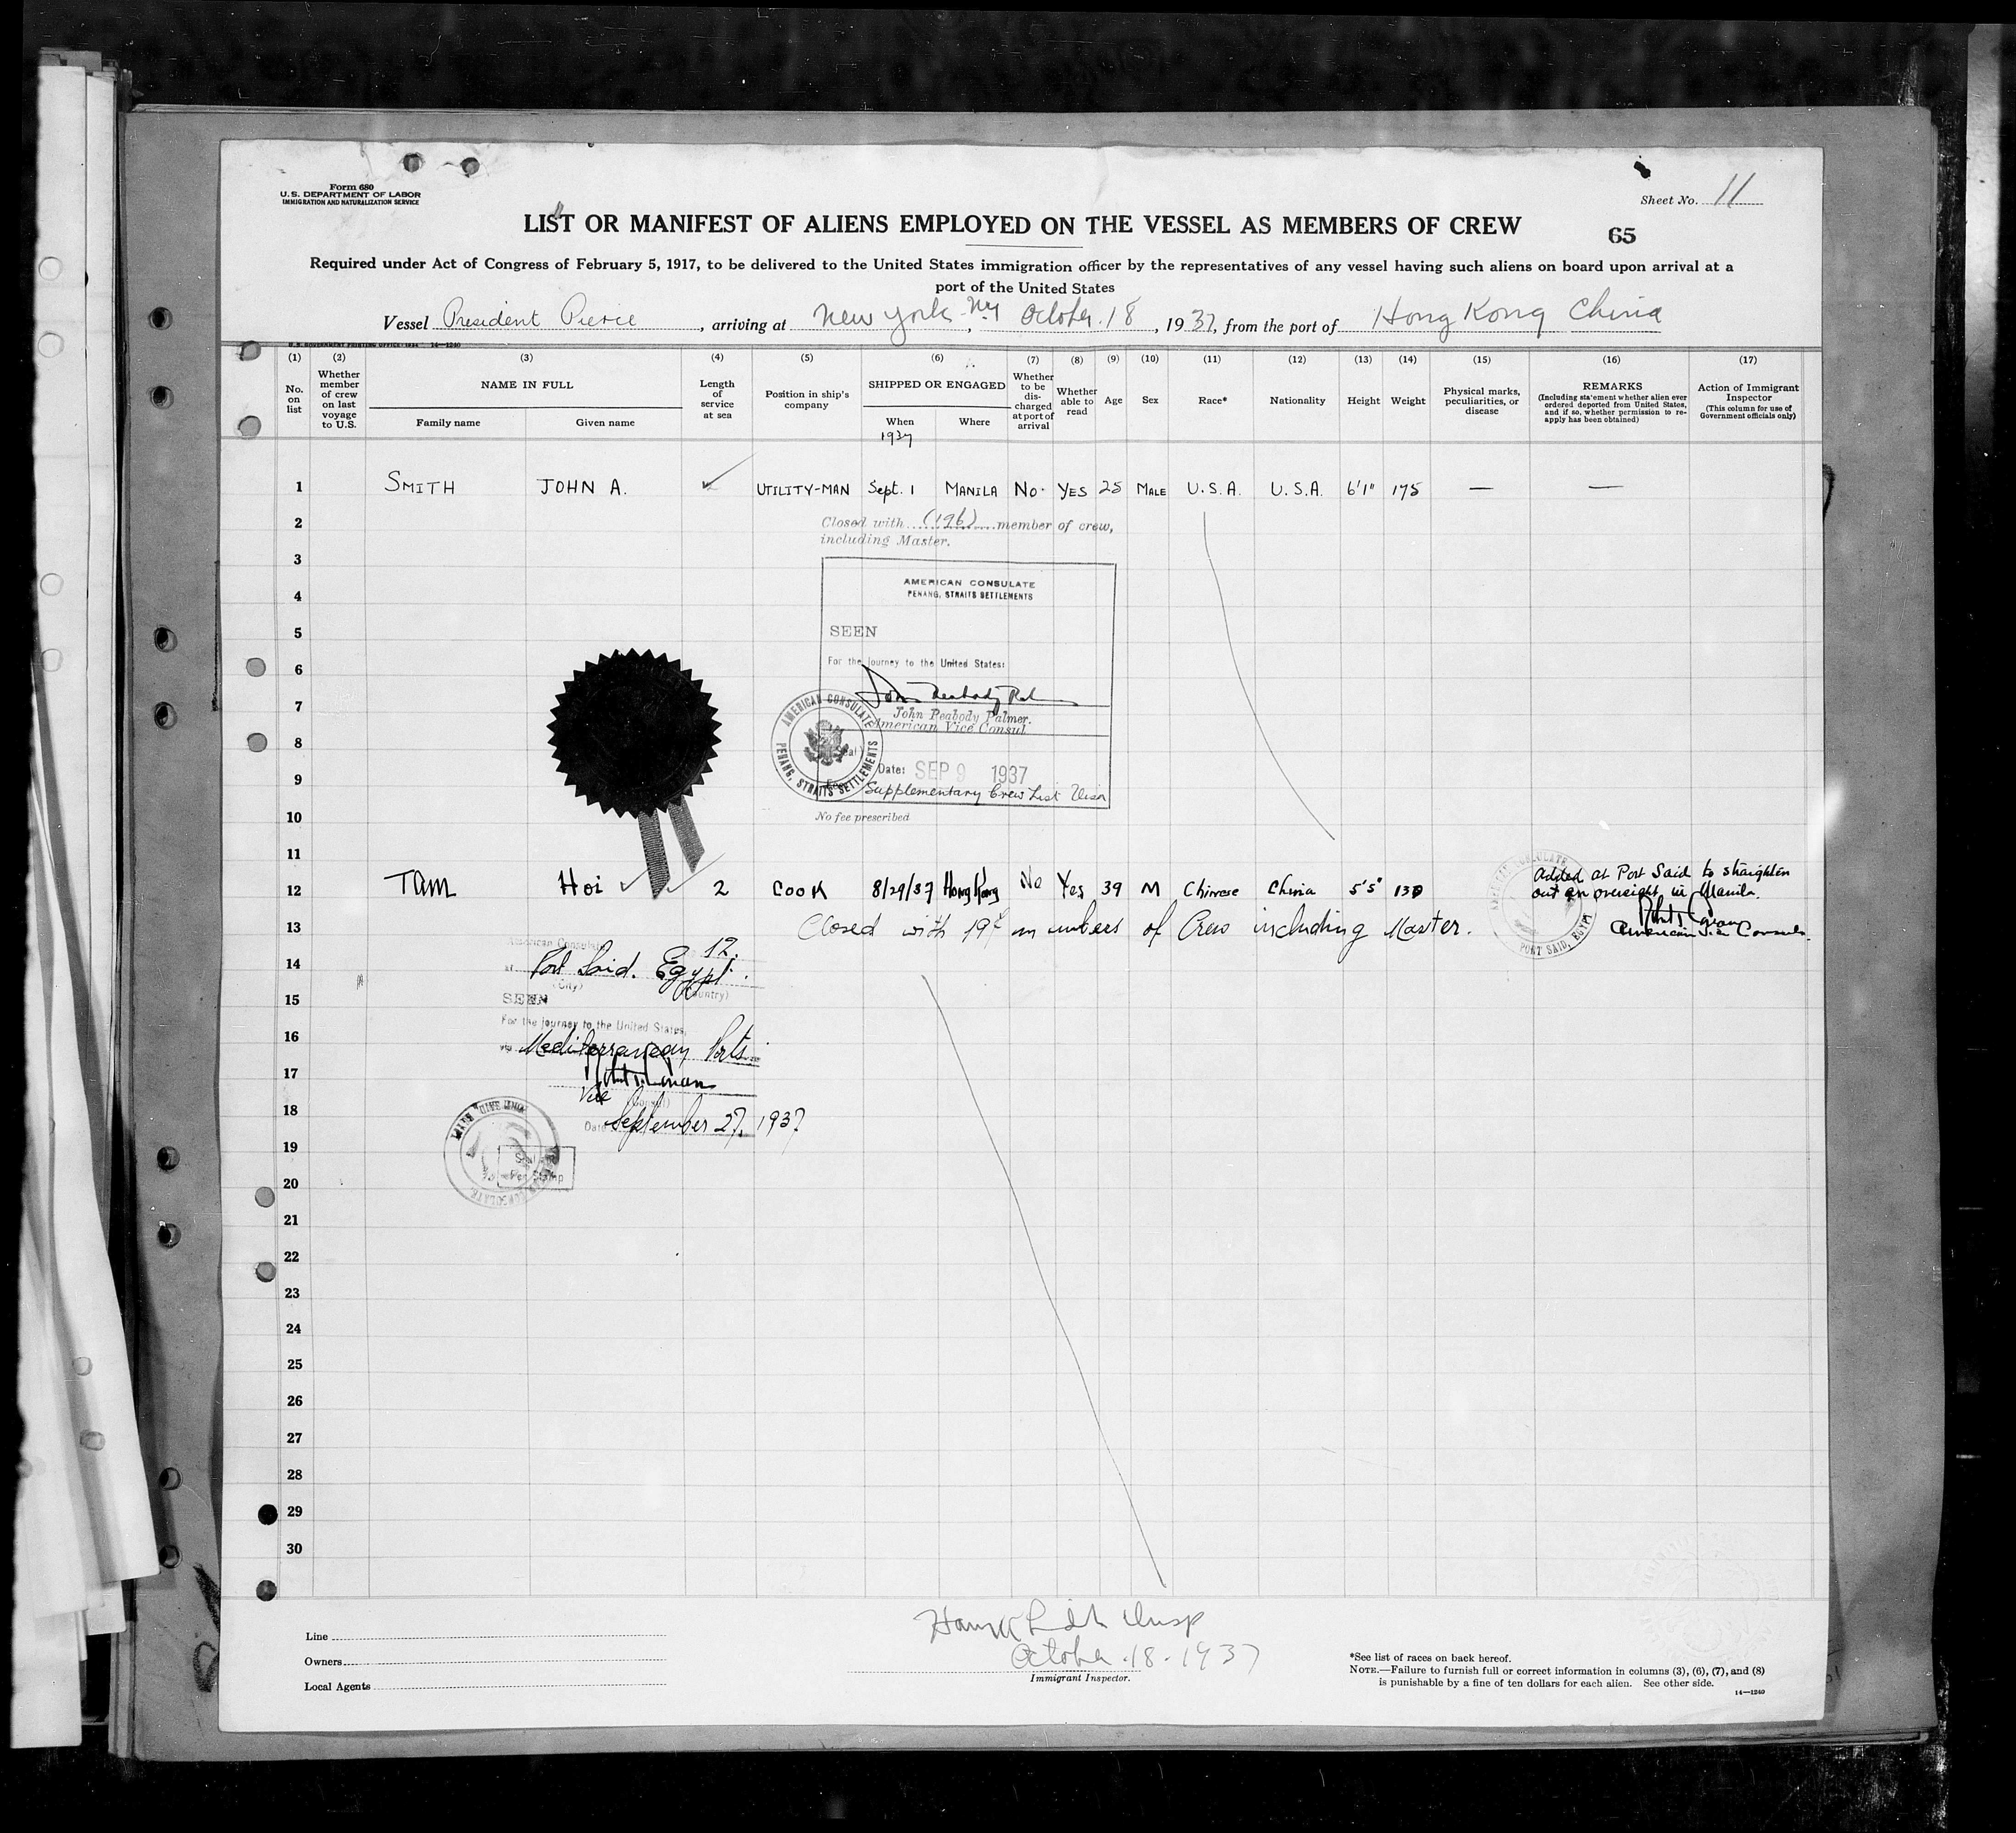 Form 680
U.S. DEPARTMENT OF LABOR
IMMIGRATION AND NATURALIZATION SERVICE
Sheet No. 11
LIST OR MANIFEST OF ALIENS EMPLOYED ON THE VESSEL AS MEMBERS OF CREW
65
Required under Act of Congress of February 5, 1917, to be delivered to the United States immigration officer by the representatives of any vessel having such aliens on board upon arrival at a
port of the United States
Vessel President Pierce, arriving at New York NY, October 18, 1937, from the port of Hong Kong China
U.S. GOVERNMENT PRINTING OFFICE: 1934 14-1240
(1) (2) (3) (4) (5) (6) (7) (8) (9) (10) (11) (12) (13) (14) (15) (16) (17)
No. on list
Whether member of crew on last voyage to U.S.
NAME IN FULL
Family name
Given name
Length of service at sea
Position in ship's company
SHIPPED OR ENGAGED
When
1937
Where
Whether to be discharged at port of arrival
Whether able to read
Age
Sex
Race*
Nationality
Height
Weight
Physical marks, peculiarities, or disease
REMARKS
(Including statement whether alien ever ordered deported from United States, and if so, whether permission to reapply has been obtained)
Action of Immigrant Inspector
(This column for use of Government officials only)
1 SMITH JOHN A. UTILITY-MAN Sept. 1 MANILA No. YES 25 MALE U.S.A. U.S.A. 6'1" 175 — —
2 Closed with (196) member of crew,
including Master.
3
AMERICAN CONSULATE
4
PENANG, STRAITS SETTLEMENTS
5
SEEN
6
For the journey to the United States:
7
John Peabody Palmer.
American Vice Consul
8
AMERICAN CONSULATE
PENANG, STRAITS SETTLEMENTS
Date: SEP 9 1937
9
Supplementary Crew List Visa
10
No fee prescribed
11
12 TAM Hoi 2 COOK 8/29/37 Hong Kong No Yes 39 M Chinese China 5'5" 130
Added at Port Said to straighten
out an oversight in Manila.
American Vice Consul.
PORT SAID, EGYPT
13 Closed with 197 members of Crew including Master.
American Consulate
12.
14
at Port Said. Egypt.
(City) (Country)
15
SEEN
For the journey to the United States,
16
via Mediterranean Ports
17
Vice (Consul)
18
Date September 27, 1937
19
20
21
22
23
24
25
26
27
28
29
30
Insp
October 18-1937
Immigrant Inspector.
Line
Owners
Local Agents
*See list of races on back hereof.
NOTE.—Failure to furnish full or correct information in columns (3), (6), (7), and (8)
is punishable by a fine of ten dollars for each alien. See other side.
14—1240